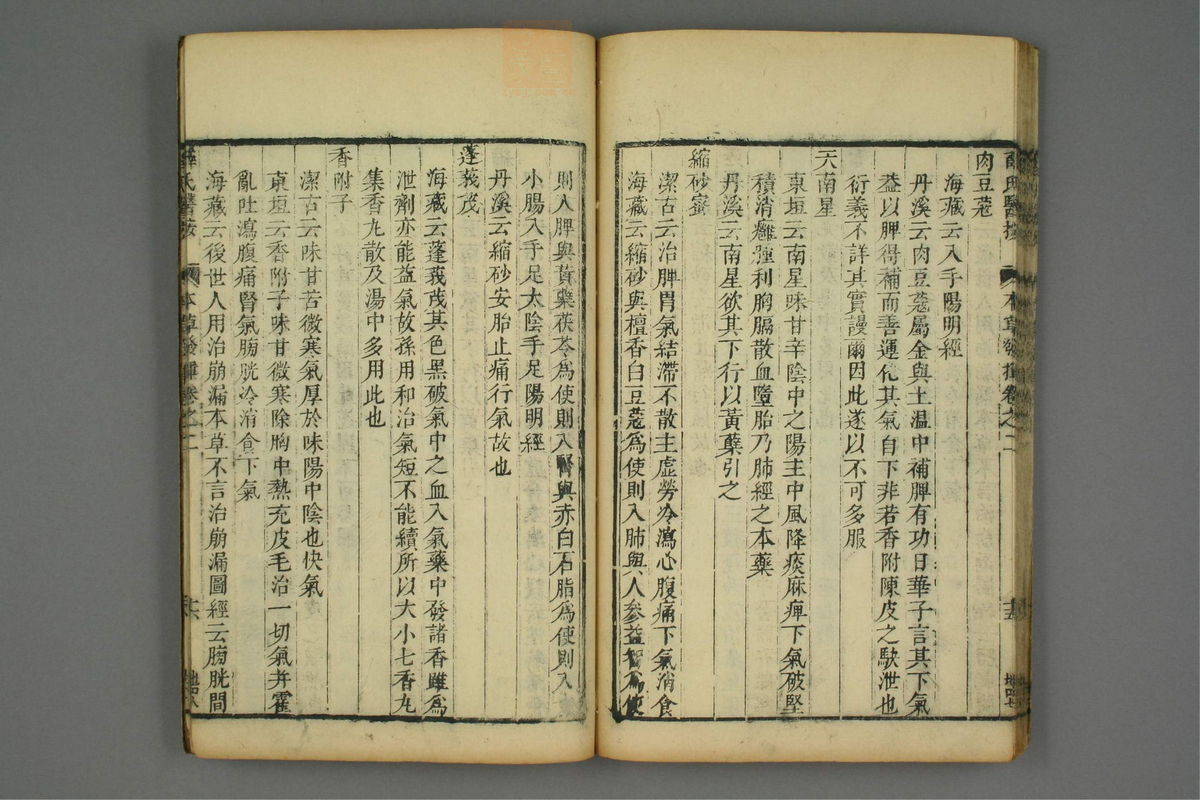 薛氏醫按 本草發揮卷之二
肉豆蔻
海藏云入手陽明經
丹溪云肉豆蔻屬金與土温中補脾有功日華子言其下氣
葢以脾得補而善運化其氣自下非若香附陳皮之駃泄也
衍義不詳其實謾爾因此遂以不可多服
天南星
東垣云南星味甘辛陰中之陽主中風降痰麻痺下氣破堅
積消癰腫利胸膈散血墮胎乃肺經之本藥
丹溪云南星欲其下行以黃蘗引之
縮砂蜜
潔古云治脾胃氣結滯不散主虛勞冷瀉心腹痛下氣消食
海藏云縮砂與檀香白豆蔻爲使則入肺與人參益智爲使
則入脾與黃蘗茯苓爲使則入腎與赤白石脂爲使則入
小腸入手足太陰手足陽明經
丹溪云縮砂安胎止痛行氣故也
蓬莪茂
海藏云蓬莪茂其色黑破氣中之血入氣藥中發諸香雖爲
泄劑亦能益氣故孫用和治氣短不能續所以大小七香丸
集香丸散及湯中多用此也
香附子
潔古云味甘苦微寒氣厚於味陽中陰也快氣
東垣云香附子味甘微寒除胸中熱充皮毛治一切氣并霍
亂吐瀉腹痛腎氣膀胱冷消食下氣
海藏云後世人用治崩漏本草不言治崩漏圖經云膀胱間
薛氏醫按 本草發揮卷之二